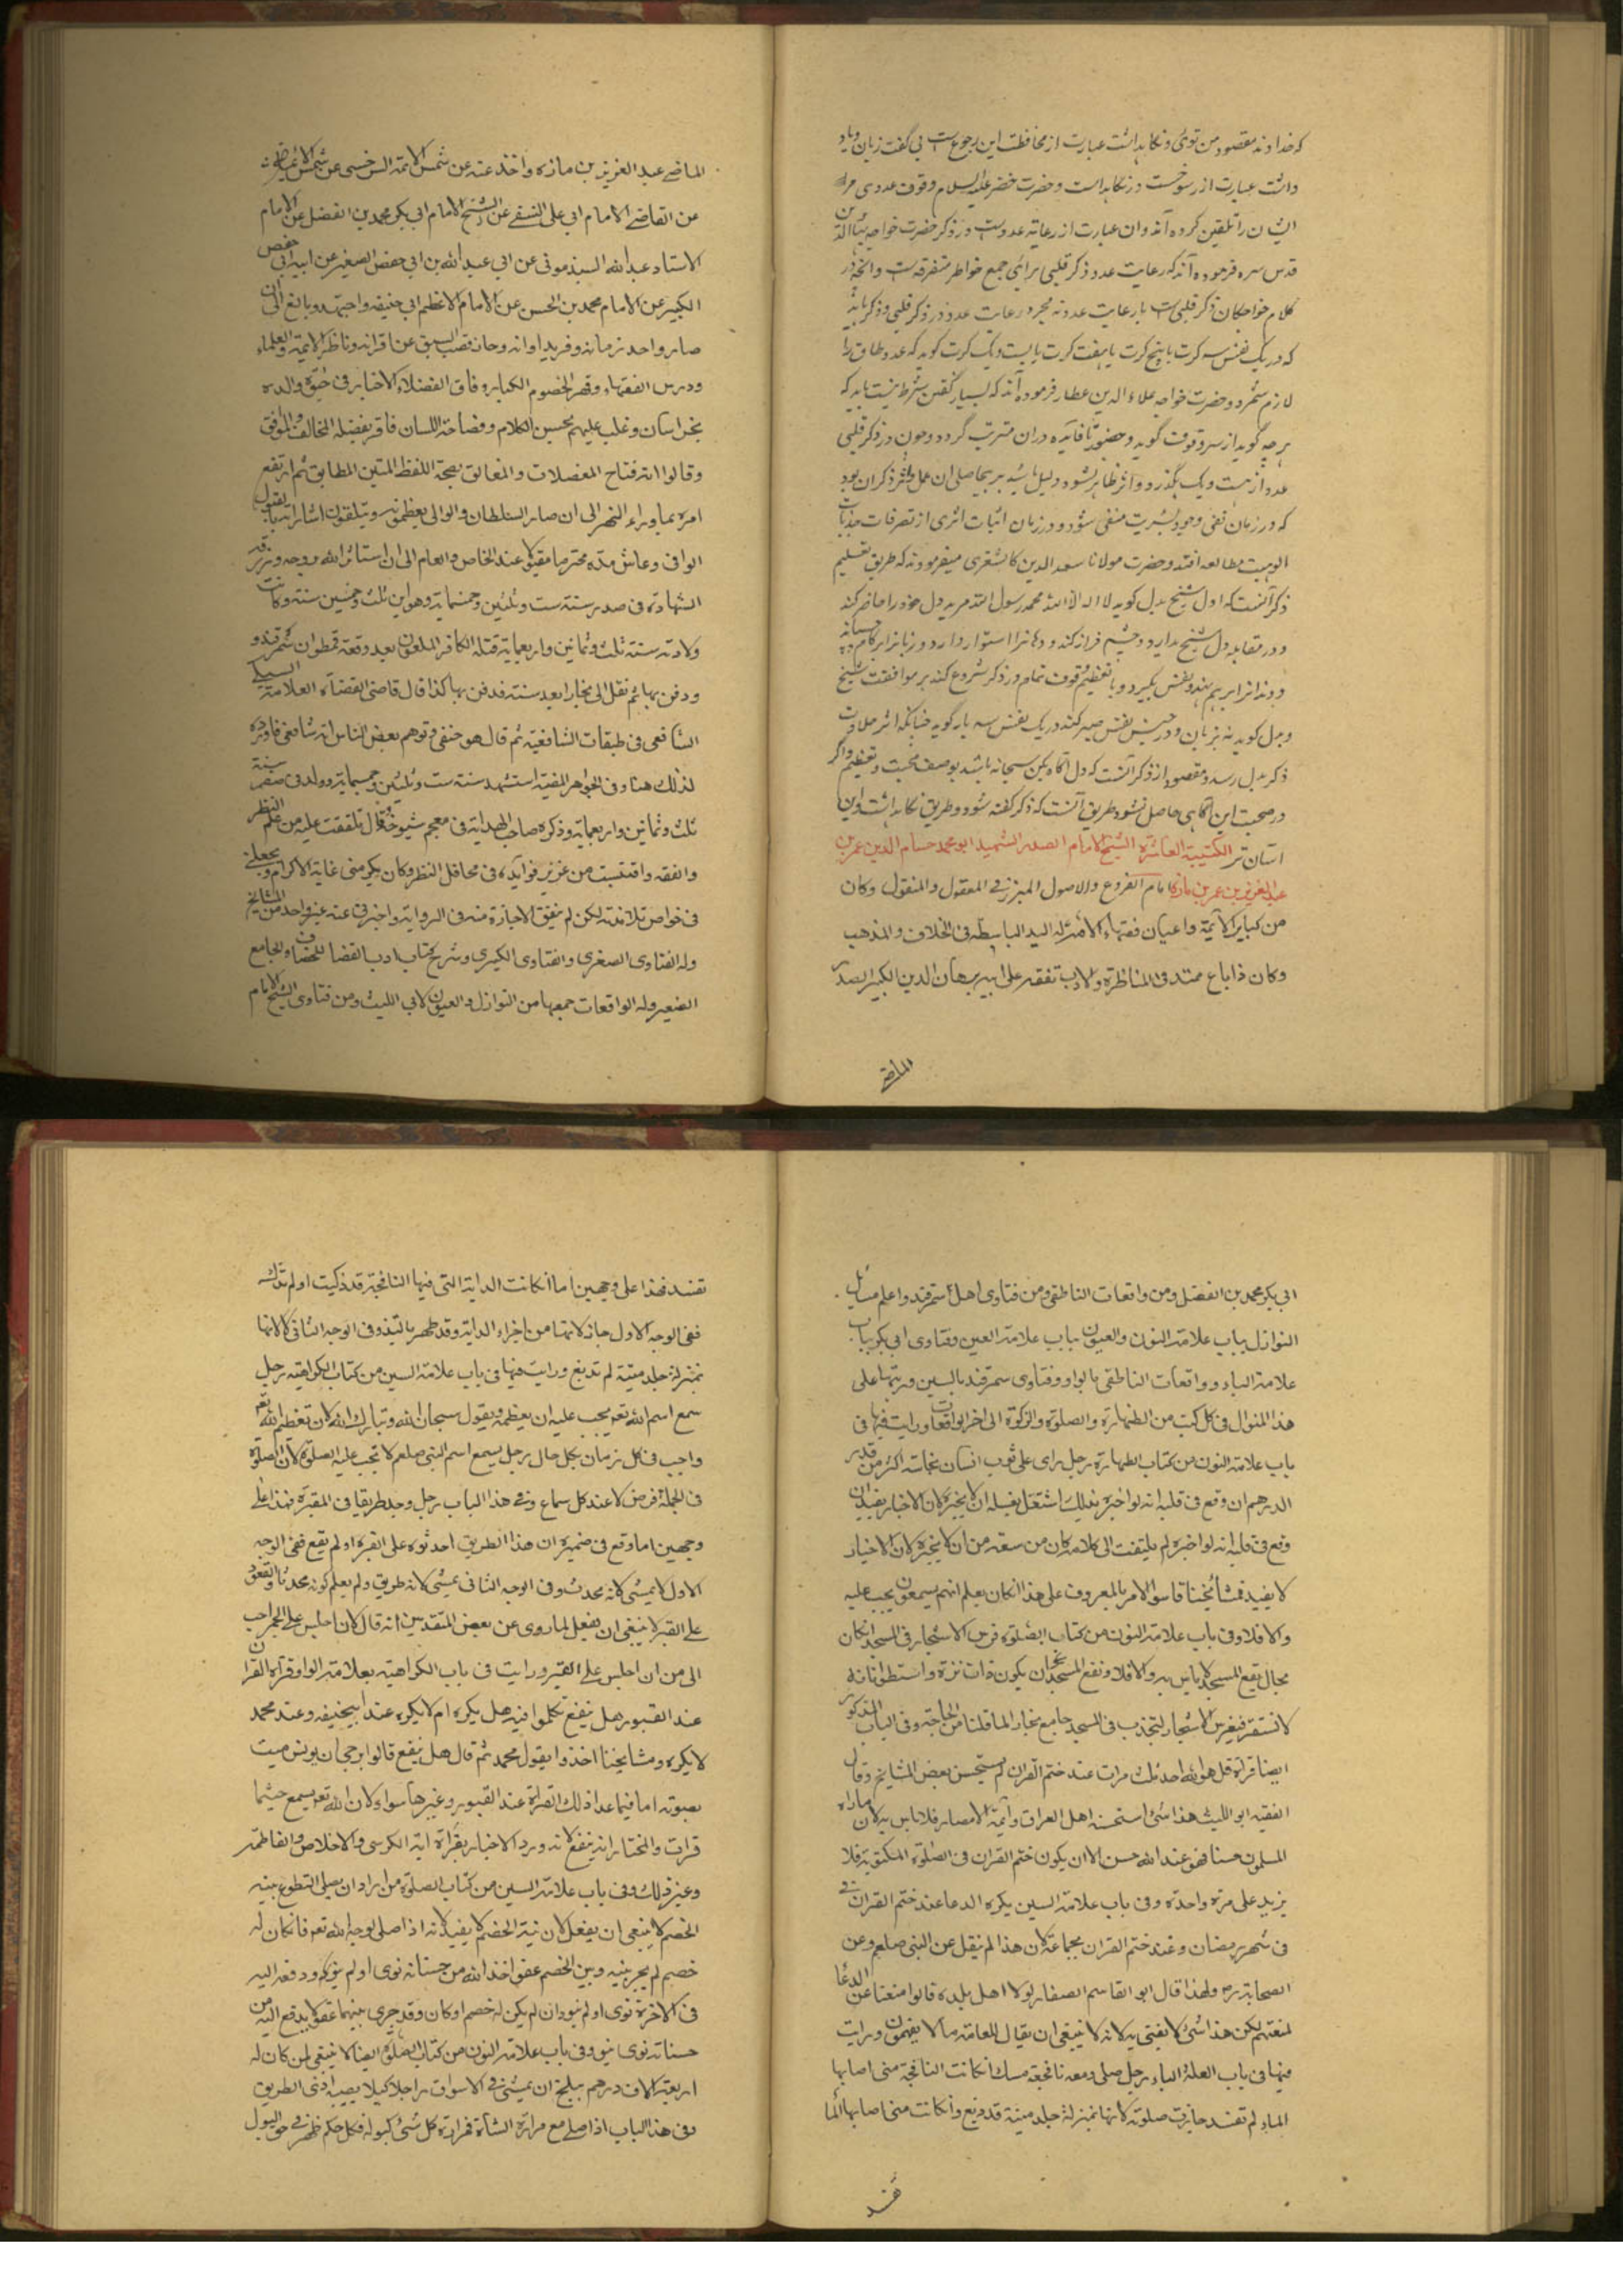 که خداوند مقصود من توئی و نکاهداشت عبارت از محافظت این رجوعست بی گفت زبان و یاد
داشت عبارت از رسوخست در نکاهداشت و حضرت خضر علیه السلام وقوف عددی مر
ایشان را تلقین کرده اند و ان عبارت از رعایة عددست در ذکر حضرت خواجه بهاالدین
قدس سره فرموده اند که رعایت عدد ذکر قلبی برای جمع خواطر متفرقه است و انچه در
کلام خواجکان ذکر قلبی است با رعایت عدد نه مجرد رعایت عدد در ذکر قلبی و ذکر باید
که در یک نفس سه کرت یا پنج کرت یا هفت کرت یا بیست و یک کرت کوید که عدد طاق را
لازم شمرد و حضرت خواجه علاء الدین عطار فرموده اند که بسیار کفتن شرط نیست باید که
هر چه کوید از سر وقوف کوید و حضور تا فایده دران مترتب کردد و چون در ذکر قلبی
عدد از بیست و یک بگذرد و اثر ظاهر نشود دلیل باشد بر بیحاصلی ان عمل و اثر ذکر ان بود
که در زمان نفی وجود بشریت منفی شود و در زمان اثبات اثری از تصرفات جذبات
الوهیت مطالعه افتد و حضرت مولانا سعد الدین کاشغری میفرمودند که طریق تعلیم
ذکر آنست که اول شیخ بدل کوید لا اله الا الله محمد رسول الله مرید دل خود را حاضر کند
و در مقابله دل شیخ بدارد و چشم فراز کند و دهانرا استوار دارد و زبانرا بر کام چسپانیده
و دندانرا بر هم نهد و نفس بکیرد و با تعظیم و قوت تمام در ذکر شروع کند بر موافقت شیخ
و بدل کوید نه بزبان و در حبس نفس صبر کند در یک نفس سه بار کوید چنانکه اثر حلاوت
ذکر بدل رسد و مقصود از ذکر آنست که دل آکاه بحق سبحانه باشد بوصف محبت و تعظیم و اکر
در صحبت این آکاهی حاصل نشود طریق آنست که ذکر کفته شود و طریق نکاهداشت این
آسان تر الکتیبة العاشرة الشیخ الامام الصدر الشهید ابو محمد حسام الدین عمر بن
عبد العزیز بن عمر بن مازه امام الفروع والاصول المبرز فی المعقول والمنقول وکان
من کبایر الایمة واعیان فقهاء الامة له الید الباسطة فی الخلاف والمذهب
وکان ذا باع ممتد فی المناظرة والادب تفقه علی ابیه برهان الدین الکبیر الصدر
الماضی
الماضی عبد العزیز بن مازه واخذ عنه عن شمس الایمة السرخسی عن شمس الایمة
عن القاضی الامام ابی علی النسفی عن الشیخ الامام ابی بکر محمد بن الفضل عن الامام
الاستاد عبد الله السبذمونی عن ابی عبد الله بن ابی حفص الصغیر عن ابیه ابی حفص
الکبیر عن الامام محمد بن الحسن عن الامام الاعظم ابی حنیفه واجتهد وبالغ الی ان
صار واحد زمانه وفرید اوانه وحاز قصب السبق عن اقرانه وناظر الایمة والعلماء
ودرس الفقهاء وقهر الخصوم الکبار وفاق الفضلاء الاخیار فی حیوة والده
بخراسان وغلب علیهم بحسین الکلام وفصاحة اللسان فاقر بفضله المخالف والموافق
وقالوا انه فتاح المعضلات والمغالق بصحة اللفظ المتین المطابق ثم ارتفع
امره بماوراء النهر الی ان صار السلطان والوالی یعظمونه ویتلقون اشاراته بالقبول
الوافی وعاش مدة محترما مقبولا عند الخاص والعام الی ان استاثر الله بروحه ورزقه
الشهادة فی صفر سنة ست وثلثین وخمسمایة وهو ابن ثلث وخمسین سنة وکانت
ولادته سنة ثلث وثمانین واربعمایة قتله الکافر الملعون بعد وقعة قطوان بسمرقند و
ودفن بها ثم نقل الی بخارا بعد سنة فدفن بها کذا قال قاضی القضاة العلامة السبکی
الشافعی فی طبقات الشافعیة ثم قال هو حنفی وتوهم بعض الناس انه شافعی فاوردته
لذلک هنا وفی الجواهر المضیة استشهد سنة ست وثلثین وخمسمایة وولد فی صفر سنة
ثلث وثمانین واربعمایة وذکره صاحب الهدایة فی معجم شیوخه وقال تلقفت علیه من علم النظر
والفقه واقتبست من غزیر فوایده فی محافل النظر وکان یکرمنی غایة الاکرام ویجعلنی
فی خواص تلامذته لکن لم یتفق الاجازة منه فی الروایة واخبرنی عنه غیر واحد من المشایخ
وله الفتاوی الصغری والفتاوی الکبری وشرح کتاب ادب القضا للخصاف والجامع
الصغیر وله الواقعات جمعها من النوازل والعیون لابی اللیث ومن فتاوی الشیخ الامام
ابی بکر محمد بن الفضل ومن واقعات الناطفی ومن فتاوی اهل سمرقند واعلم مسایل
النوازل بباب علامة النون والعیون بباب علامة العین وفتاوی ابی بکر بباب
علامة الباء وواقعات الناطفی بالواو وفتاوی سمرقند بالسین ورتبها علی
هذا المنوال فی کل کتب من الطهارة والصلوة والزکوة الی اخر الواقعات ورایت فیها فی
باب علامة النون من کتاب الطهارة رجل رای علی ثوب انسان نجاسة اکثر من قدر
الدرهم ان وقع فی قلبه انه لو اخبره بذلک اشتغل بغسله ان لا یخبره لان الاخبار یفید وان
وقع فی قلبه انه لو اخبره لم یلتفت الی کلامه کان من سعة من ان لا یخبره لان الاخبار
لا یفید فمشایخنا قاسوا الامر بالمعروف علی هذا ان کان یعلم انهم یسمعون یجب علیه
والا فلا وفی باب علامة النون من کتاب الصلوة غرس الاشجار فی المسجد ان کان
بحال یقع المسجد لا باس به والا فلا ونفع المسجد ان یکون ذات نزة واسطوانانه
لا تستقر فیغرس الاشجار لتجذب فی المسجد جامع بخارا لما قلنا من الحاجة وفی الباب المذکور
ایضا قراة قل هو الله احد ثلث مرات عند ختم القران لم یستحسن بعض المشایخ وقال
الفقیه ابو اللیث هذا شئ استحسنه اهل العراق وایمة الامصار فلا باس به لان ما راه
المسلمون حسنا فهو عند الله حسن الا ان یکون ختم القران فی الصلوة المکتوبة فلا
یزید علی مرة واحدة وفی باب علامة السین یکره الدعا عند ختم القران فی
فی شهر رمضان وعند ختم القران بجماعة لان هذا لم ینقل عن النبی صلعم وعن
الصحابة رض ولهذا قال ابو القاسم الصفار لولا اهل بلده قالوا منعنا عن الدعا
لمنعتهم لکن هذا شئ لا یفتی به لانه لا ینبغی ان یقال للعامة ما لا یفهمون ورایت
فیها فی باب العلة الباء رجل صلی ومعه نافجة مسک ان کانت النافجة متی اصابها
الماء لم تفسد جازت صلوته لانها بمنزلة جلد میتة قد دبغ وان کانت متی اصابها الما
تفسد
تفسد فهذا علی وجهین اما ان کانت الدابة التی فیها النافجة قد ذکیت او لم تذک
ففی الوجه الاول جاز لانها من اجزاء الدابة وقد طهر بالتذ وفی الوجه الثانی لا لانها
بمنزلة جلد میتة لم تدبغ ورایت فیها فی باب علامة السین من کتاب الکراهیة رجل
سمع اسم الله تع یجب علیه ان یعظمه ویقول سبحان الله وتبارک الله لان تعظیم الله تع
واجب فی کل زمان بکل حال رجل یسمع اسم النبی صلعم لا تجب علیه الصلوة لان الصلوة
فی الجملة فرض لا عند کل سماع وفی هذا الباب رجل وجد طریقا فی المقبرة فهذا علی
وجهین اما وقع فی ضمیره ان هذا الطریق احدثوه علی القبر او لم یقع ففی الوجه
الاول لا یمشی لانه محدث وفی الوجه الثانی یمشی لانه طریق ولم یعلم کونه محدثا والقعود
علی القبر لا ینبغی ان یفعل لما روی عن بعض المتقدمین انه قال لان اجلس علی الجمر احب
الی من ان اجلس علی القبر ورایت فی باب الکراهیة بعلامة الواو قراة القران
عند القبور هل ینفع تکلموا فیه هل یکره ام لا یکره عند ابیحنیفه وعند محمد
لا یکره ومشایخنا اخذوا بقول محمد ثم قال هل ینفع قالوا یرجی ان یونس میت
بصوته اما فیما عدا ذلک القراة عند القبور وغیرها سواء لان الله تع یسمع حیثما
قرات والمختار انه ینفع لانه ورد الاخبار بقراة ایة الکرسی والاخلاص والفاطمة
وغیر ذلک وفی باب علامة السین من کتاب الصلوة من اراد ان یصلی التطوع بنیة
الخصم لا ینبغی ان یفعل لان نیة الخصم لا یفید لانه اذا صلی لوجه الله تع فان کان له
خصم لم یجر بینه وبین الخصم عفو اخذ الله من حسناته نوی او لم ینو ودفعه الیه
فی الاخرة نوی او لم ینو وان لم یکن له خصم او کان وقد جری بینهما عفو لا یدفع الیه من
حسناته نوی ام لا وفی باب علامة النون من کتاب الصلوة ایضا لا ینبغی لمن کان له
اربعة الاف درهم ببلخ ان یمشی فی الاسواق راجلا کیلا یصیبه اذی الطریق
وفی هذا الباب اذا صلی مع مرارة الشاة فمرارة کل شئ کبوله فکل حکم ظهر فی حق البول